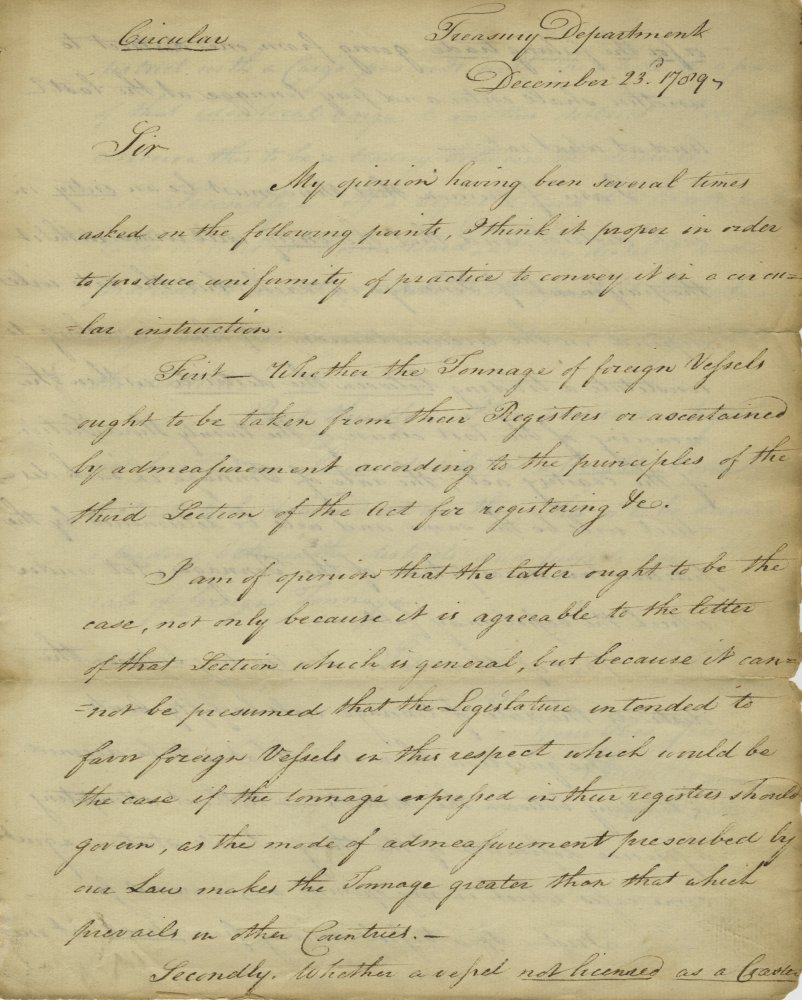 Circular Treasury Department
December 23d. 1789,
Sir
My opinion having been several times
asked on the following points, I think it proper in order
to produce uniformity of practice to convey it in a circu=
=lar instruction.
First — Whether the Tonnage of foreign Vessels
ought to be taken from their Registers or ascertained
by admeasurement acording to the principles of the
third Section of the Act for registering &c.
I am of opinion that the latter ought to be the
case, not only because it is agreeable to the letter
of that Section which is general, but because it can=
=not be presumed that the Legislature intended to
favor foreign Vessels in this respect which would be
the case if the tonnage expressed in their registers should
govern, as the mode of admeasurement prescribed by
our Law makes the Tonnage greater than that which
prevails in other Countries. —
Secondly. Whether a vessel not licensed as a Coaster